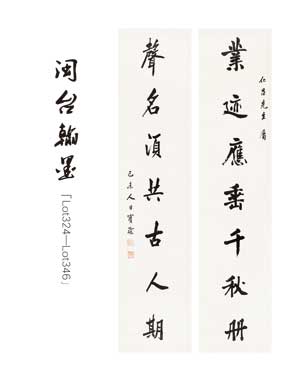 闽台翰墨
「Lot324—Lot346」
仁昌先生属
業迹應垂千秋册
聲名須共古人期
己未人日寶琛